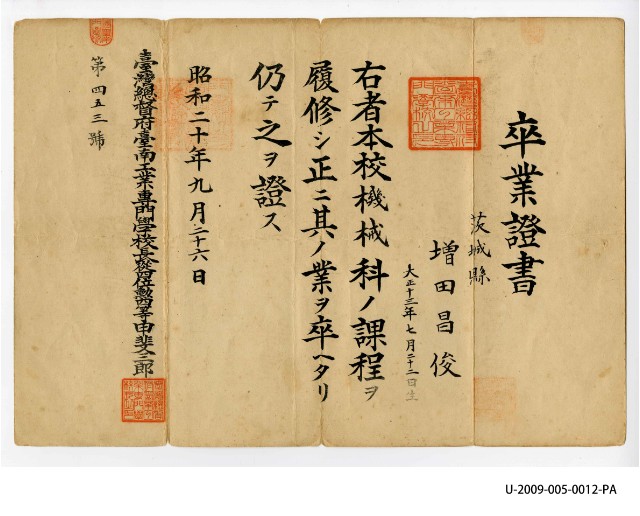 卒業證書
茨城縣
增田昌俊
大正十三年七月二十二日生
右者本校機械科ノ課程ヲ
履修シ正ニ其ノ業ヲ卒ヘタリ
仍テ之ヲ證ス
昭和二十年九月二十六日
臺灣總督府臺南工業專門學校長 勲 等甲斐三郎
第四五三號
U-2009-005-0012-PA